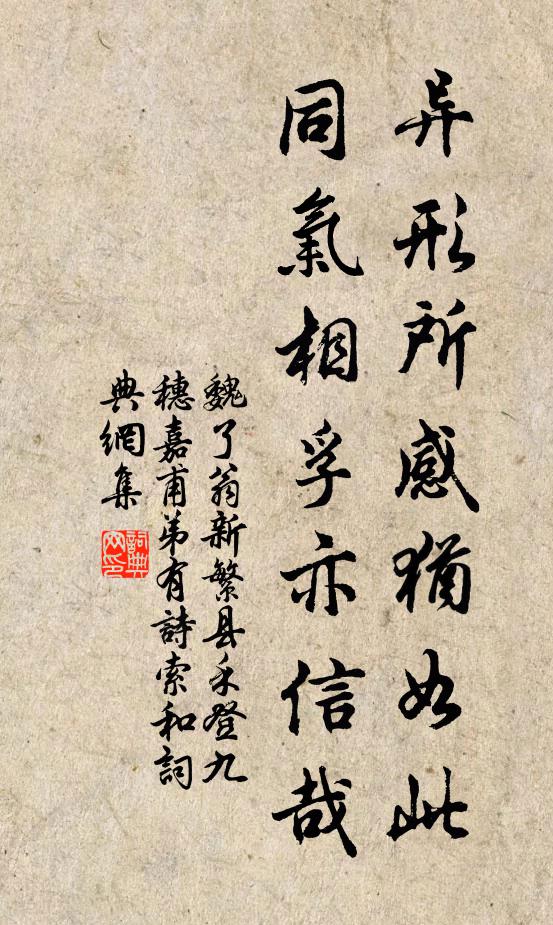 异形所感犹如此
同氣相孚亦信哉
魏了翁新繁县禾登九
穗嘉甫弟有詩索和詞
典網集
詞典
网印